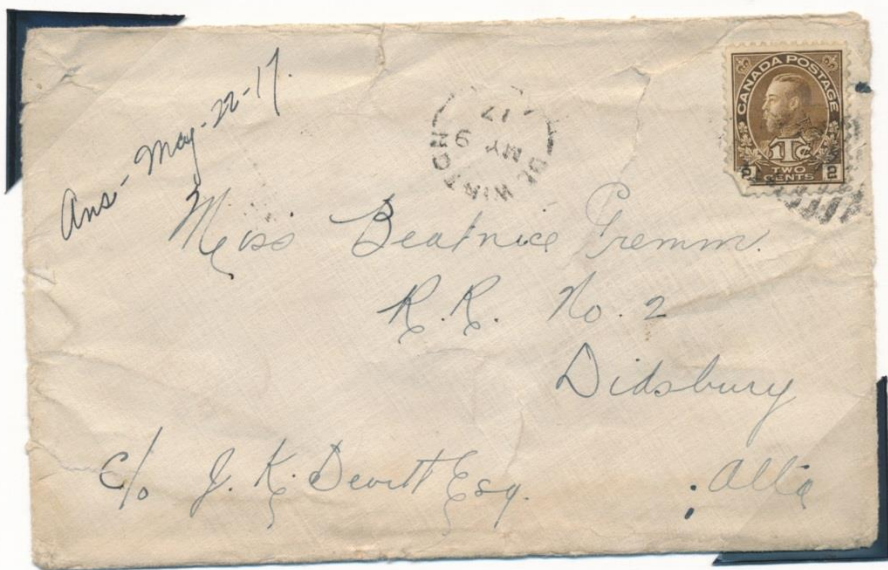 Ans- May-22-17.
DE WINTON
MY 9
17
CANADA POSTAGE
1Tc
2 TWO CENTS 2
Miss Beatrice Gremm.
R.R. No. 2
Didsbury
c/o J. K. Devitt Esq.
Alta